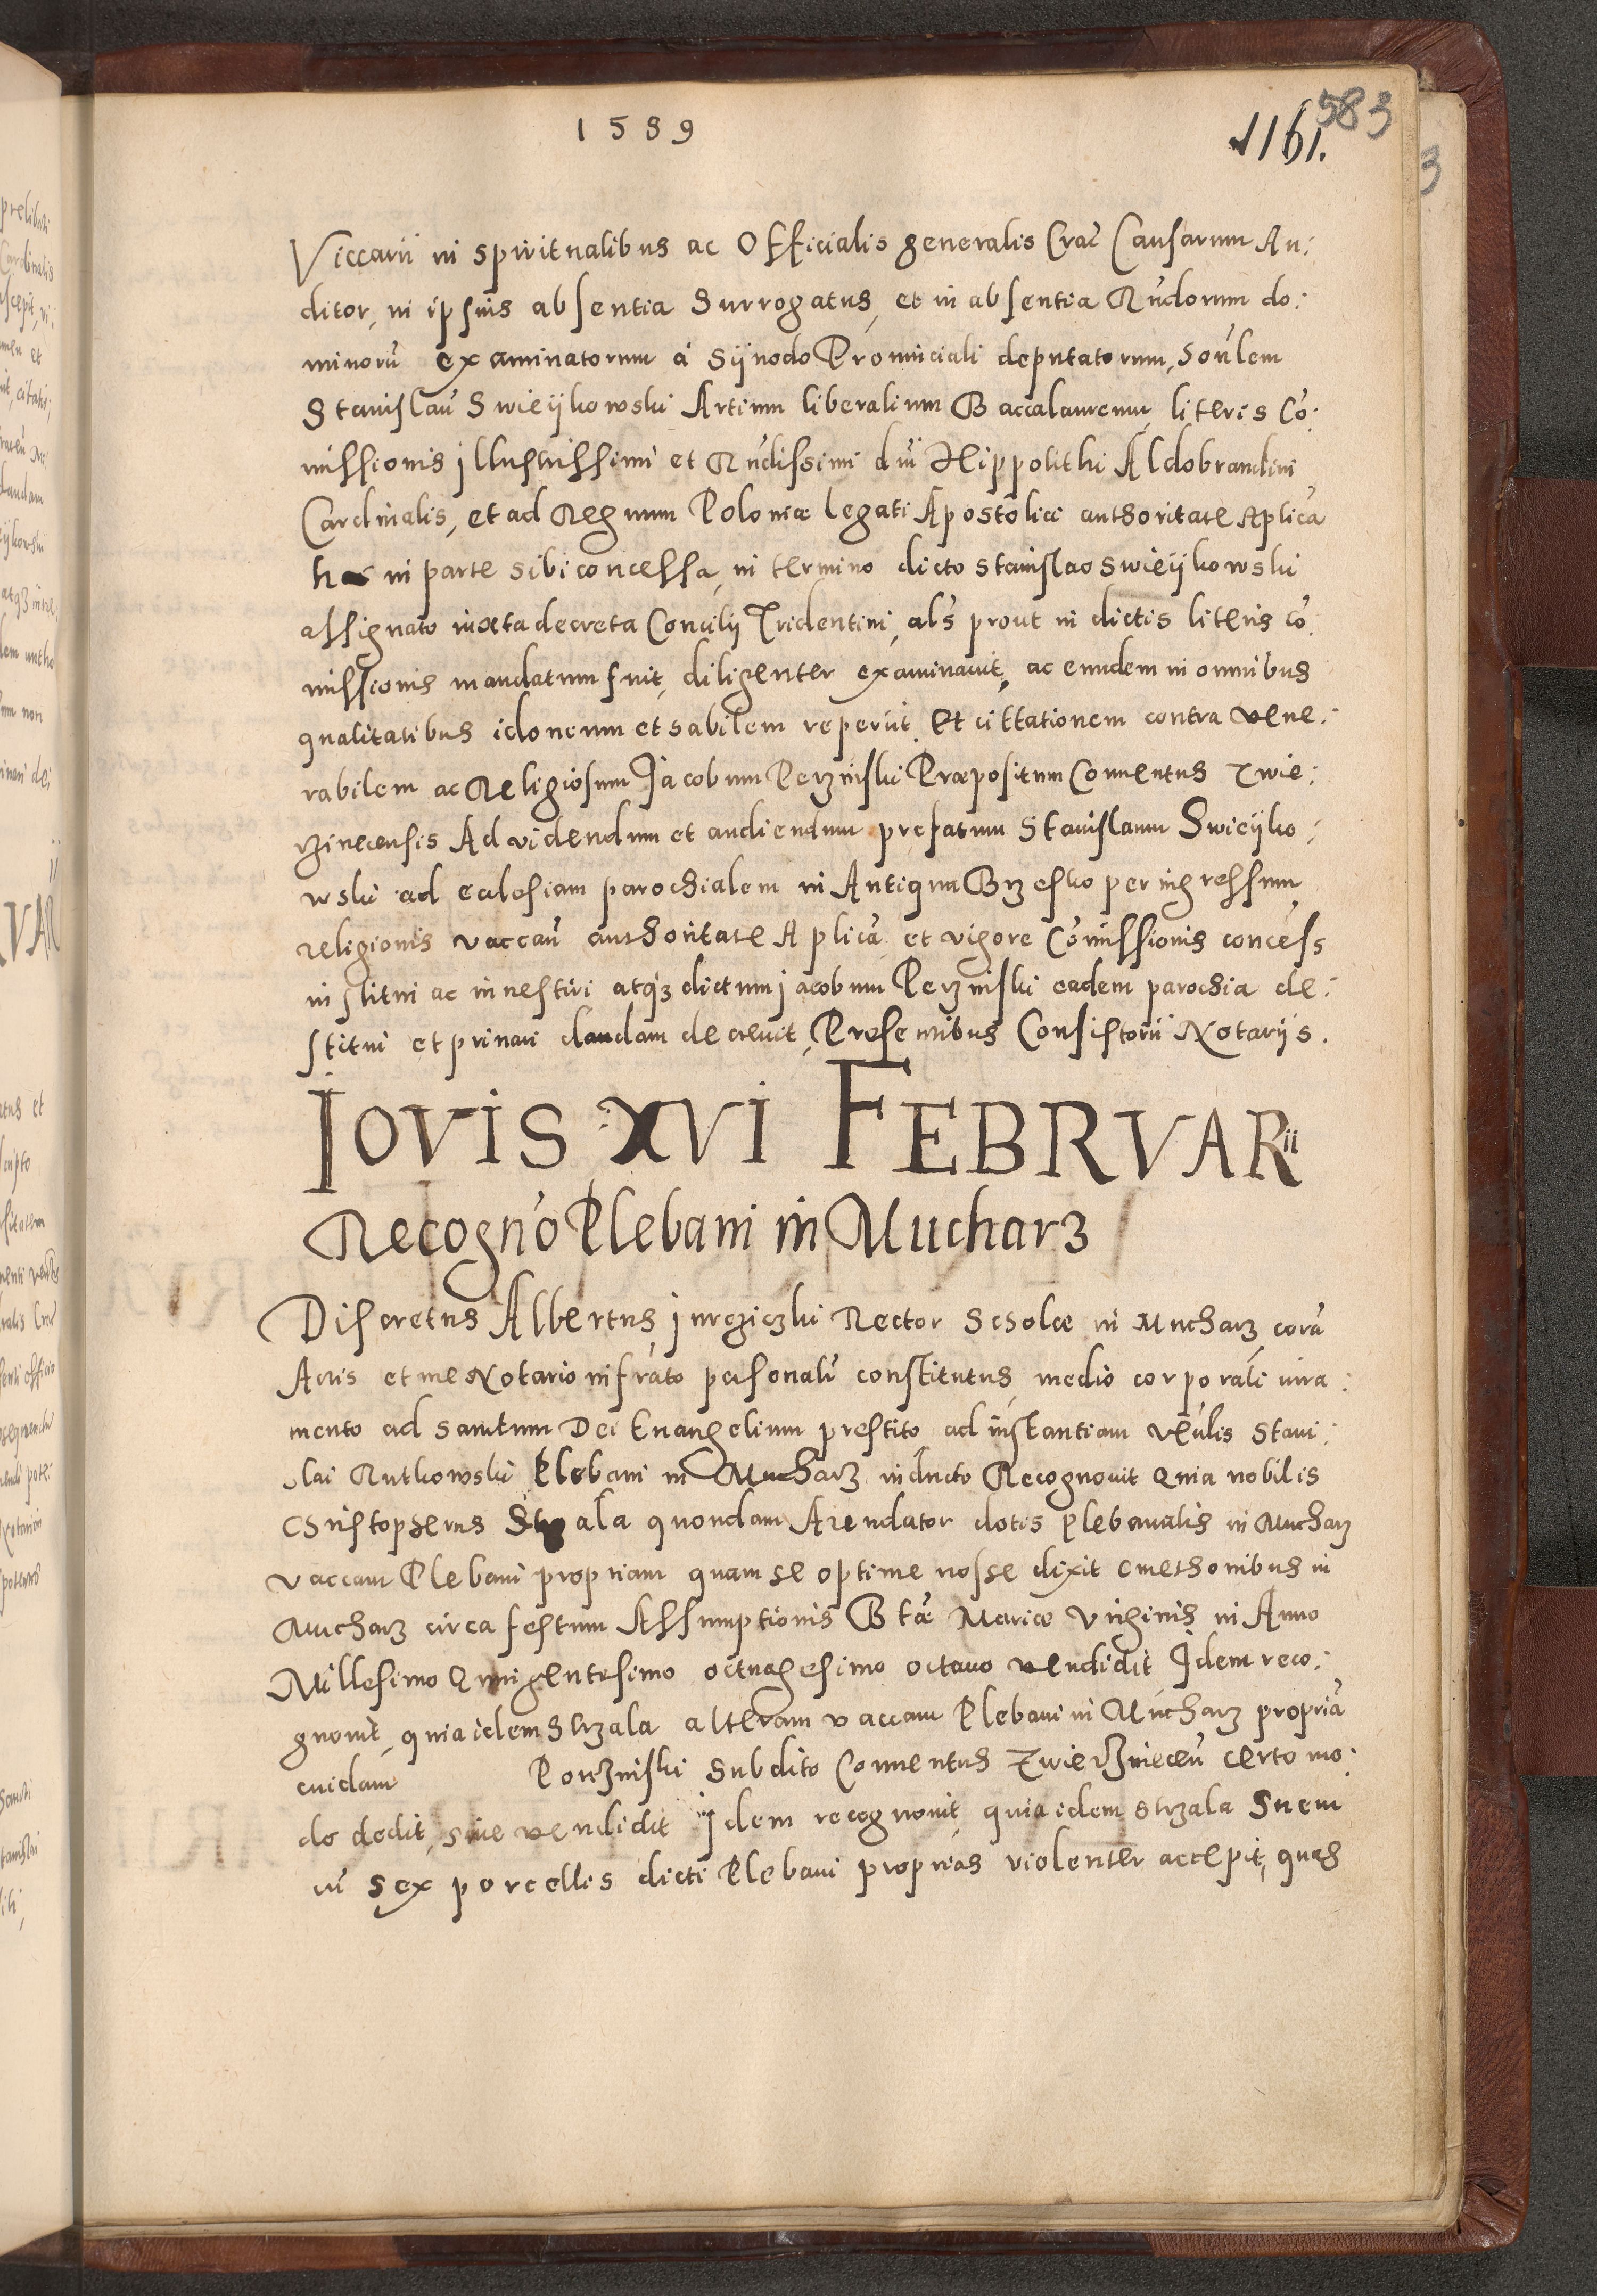 1589
1161. 583
Viccarii in spiritualibus ac Officialis generalis Crac̃ Causarum Au:
ditor, in ipsius absentia Surrogatus, et in absentia Rñdorum do:
minorũ examinatorum á Sÿnodo Prouinciali deputatorum, Soñlem
Stanislaũ Swieÿkowski Artium liberalium Baccalaureum, literis Cõ:
missionis jllustrissimi et Rñdissimi dñi Hippolithi Aldobrandini
Cardinalis, et ad Regnum Poloniæ legati Apostolici authoritate Aplica
hac in parte sibi concessa, in termino dicto Stanislao Swieÿkowski
assignato iuxta decreta Concilij Tridentini, als prout in dictis literis cõ:
missionis mandatum fuit, diligenter examinauit, ac eundem in omnibus
qualitatibus idoneum et habilem reperiit. Et cittationem contra vene:
rabilem ac Religiosum Jacobum Perzinski Præpositum Conuentus Zwie:
rzinecensis Ad videndum et audiendum prefatum Stanislaum Swieÿko:
wski ad ecclesiam parochialem in Antiqua Brzesko per ingressum
religionis vaccañ authoritate Aplica et vigore Cõmissionis concess
institui ac inuestiri atqz dictum jacobum Perzinski eadem parochia de:
stitui et priuari dandam decreuit, Presentibus Consistorii Notarijs.
IOVIS XVI FEBRVARii
Recogn̄o Plebani in Mucharz
Discretus Albertus jurgiczki Rector Scholæ in Mucharz corã
Actis et me Notario infrãto personalr̃ constitutus, medio corporali iura:
mento ad sanctum Dei Euangelium prestito ad instantiam veñlis Stani:
slai Rutkowski Plebani in Mucharz inducto Recognouit Quia nobilis
Christopherus Strzala quondam Arendator dotis plebanalis in Mucharz
vaccam Plebani propriam quam se optime nosse dixit cmethonibus in
Mucharz circa festum Assumptionis Btæ Mariæ Virginis in Anno
Millesimo Quingentesimo octuagesimo octauo vendidit Jdem reco:
gnouit, quia idem Strzala alteram vaccam Plebani in Mucharz propriã
cuidam Porzinski Subdito Conuentus Zwierzinieceñ certo mo:
do dedit, siue vendidit Jdem recognouit, quia idem Strzala Suem
cũ sex porcellis dicti Plebani proprias violenter accepit, quas